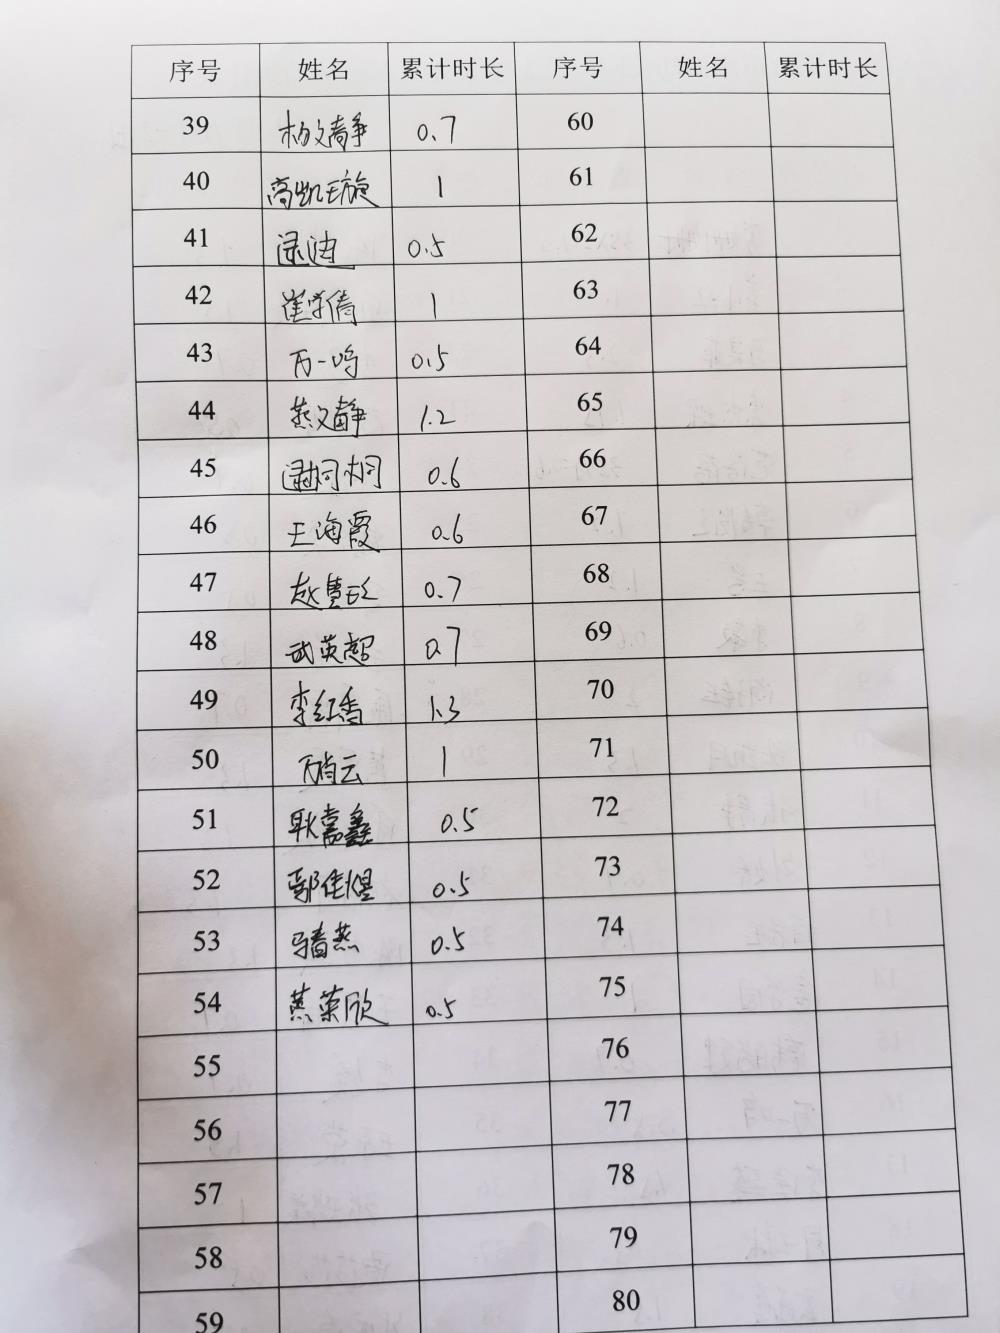 序号 姓名 累计时长 序号 姓名 累计时长
39 杨文静 0.7 60
40 高凯旋 1 61
41 逯迪 0.5 62
42 崔学倩 1 63
43 万一鸣 0.5 64
44 燕文静 1.2 65
45 逯桐桐 0.6 66
46 王海霞 0.6 67
47 0.7 68
48 武英超 0.7 69
49 李红香 1.3 70
50 1 71
51 耿嘉鑫 0.5 72
52 鄢佳煜 0.5 73
53 骆春燕 0.5 74
54 燕荣欣 0.5 75
55 76
56 77
57 78
58 79
59 80